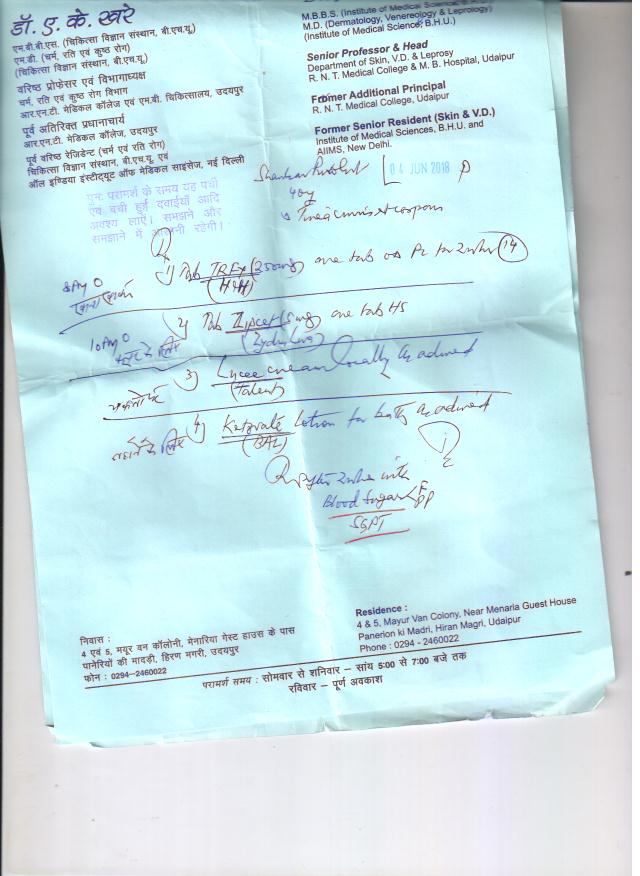 डॉ. ए. के. खरे
एम.बी.बी.एस. (चिकित्सा विज्ञान संस्थान, बी.एच.यू.)
एम.डी. (चर्म, रति एवं कुष्ठ रोग)
(चिकित्सा विज्ञान संस्थान, बी.एच.यू.)
वरिष्ठ प्रोफेसर एवं विभागाध्यक्ष
चर्म, रति एवं कुष्ठ रोग विभाग
आर.एन.टी. मेडिकल कॉलेज एवं एम.बी. चिकित्सालय, उदयपुर
पूर्व अतिरिक्त प्रधानाचार्य
आर.एन.टी. मेडिकल कॉलेज, उदयपुर
पूर्व वरिष्ठ रेजिडेन्ट (चर्म एवं रति रोग)
चिकित्सा विज्ञान संस्थान, बी.एच.यू. एवं
ऑल इण्डिया इंस्टीट्यूट ऑफ मेडिकल साइंसेज, नई दिल्ली
M.B.B.S. (Institute of Medical Science, B.H.U.)
M.D. (Dermatology, Venereology & Leprology)
(Institute of Medical Science, B.H.U.)
Senior Professor & Head
Department of Skin, V.D. & Leprosy
R. N. T. Medical College & M. B. Hospital, Udaipur
Former Additional Principal
R. N. T. Medical College, Udaipur
Former Senior Resident (Skin & V.D.)
Institute of Medical Sciences, B.H.U. and
AIIMS, New Delhi.
04 JUN 2018
पुनः परामर्श के समय यह पर्ची
एवं बची हुई दवाईयाँ आदि
अवश्य लाएं। समझने और
समझाने में आसानी रहेगी।
40y
1) Tab (250mg) one tab od Pc for 2 wks 14
2) Tab Zipcet (5mg) one tab HS
3) cream locally as advised
(Talent)
4) Lotion for bath as advised
2 wks with
Blood Sugar F PP
SGPT
निवास :
4 एवं 5, मयूर वन कॉलोनी, मेनारिया गेस्ट हाउस के पास
पानेरियों की मादड़ी, हिरण मगरी, उदयपुर
फोन : 0294-2460022
Residence :
4 & 5, Mayur Van Colony, Near Menaria Guest House
Panerion ki Madri, Hiran Magri, Udaipur
Phone : 0294 - 2460022
परामर्श समय : सोमवार से शनिवार – सांय 5:00 से 7:00 बजे तक
रविवार – पूर्ण अवकाश